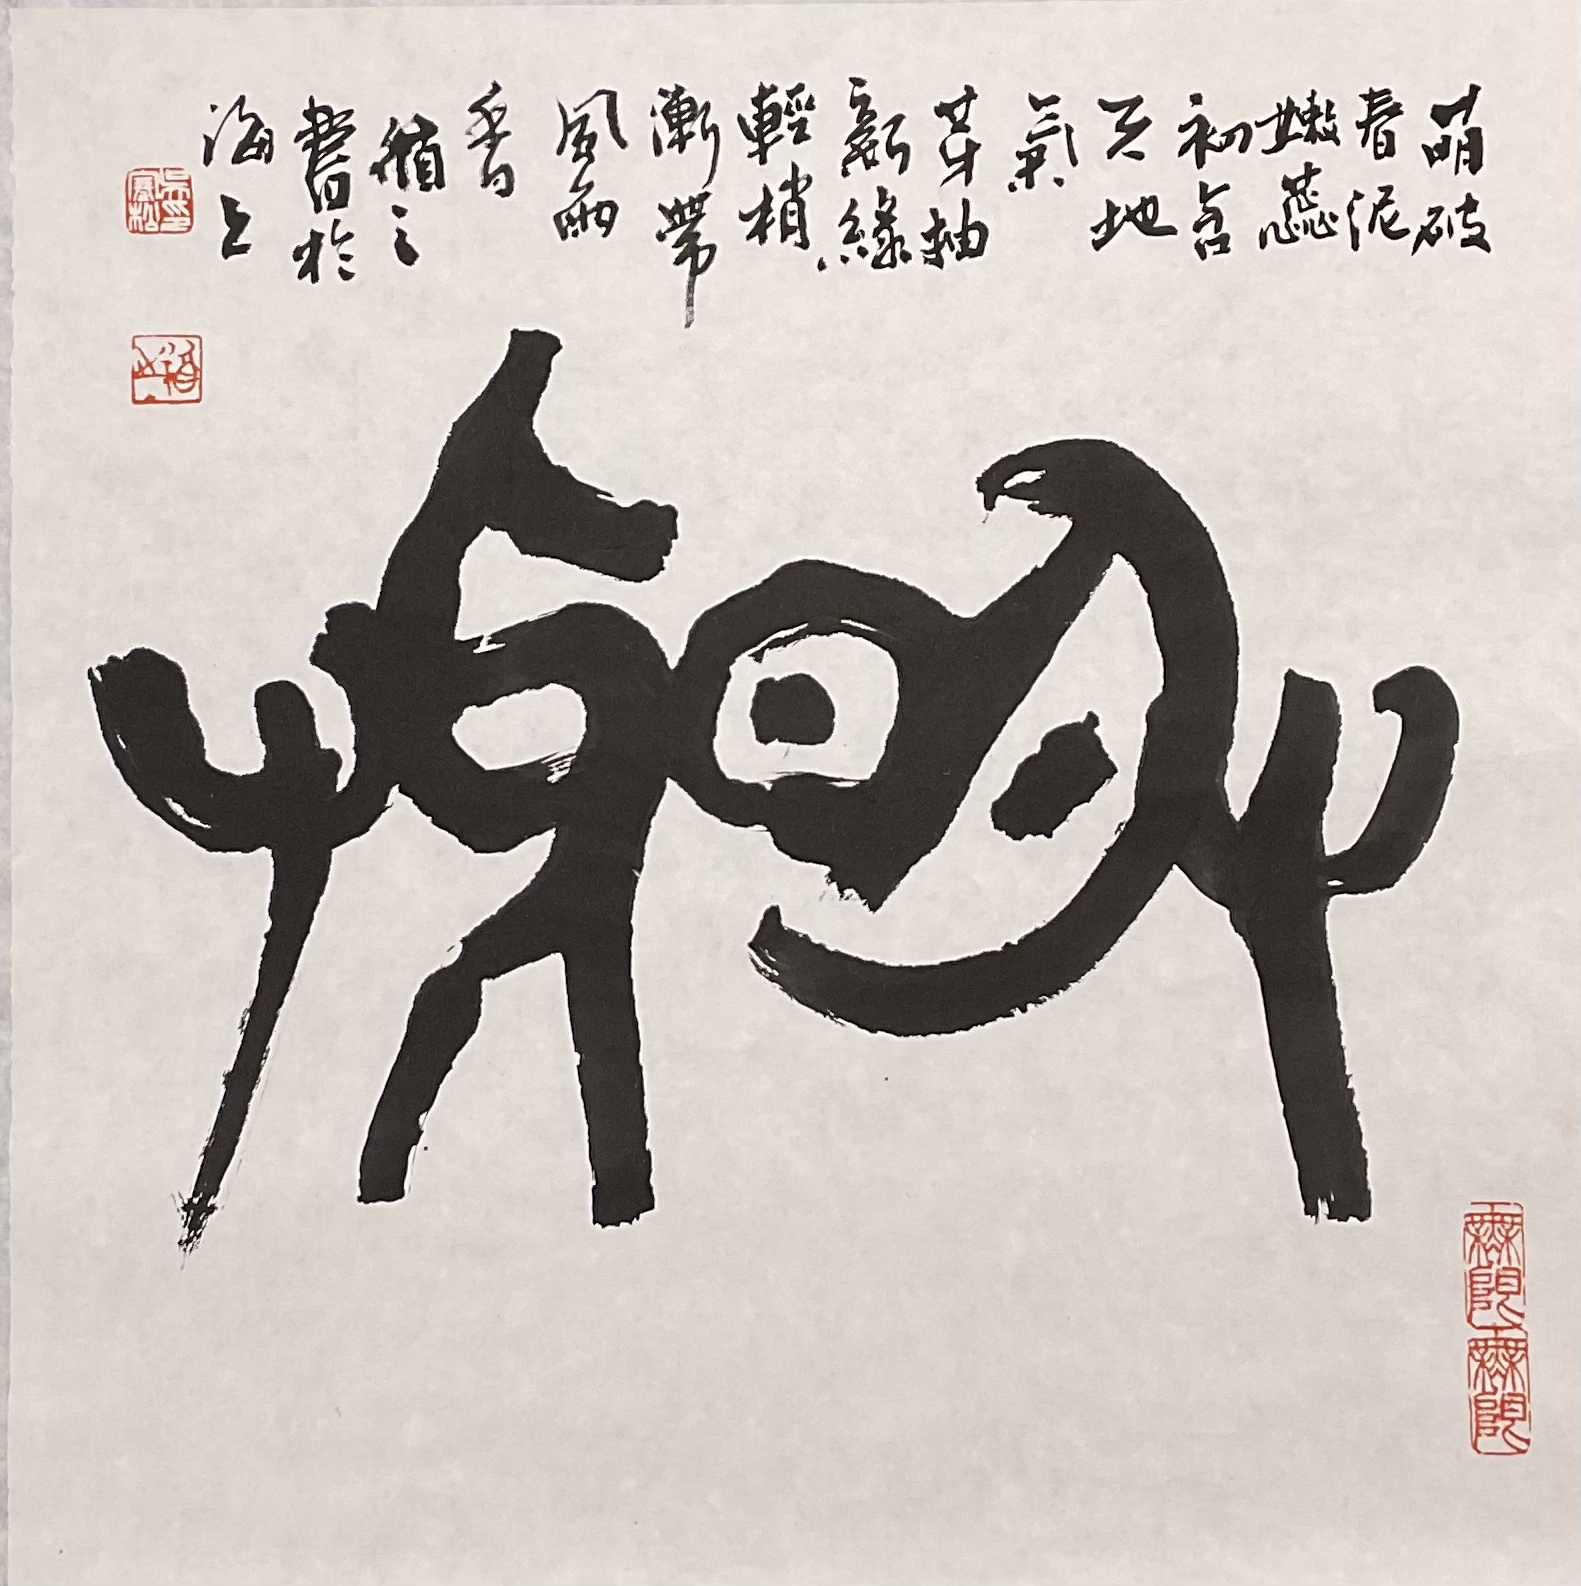 萌破
春泥
嫩蕊
初含
天地
氣
芽抽
新綠
輕梢
漸帶
風雨
香
之
書於
海上
萌芽